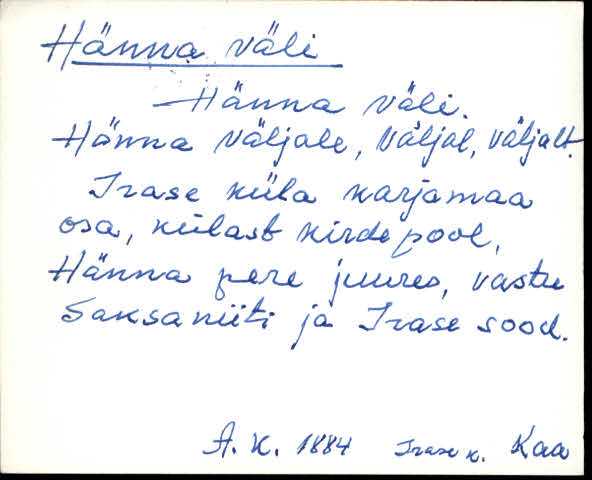 Hänna väli
Hänna väli.
Hänna väljale, väljal, väljalt.
Irase küla karjamaa
osa, külast kirde pool,
Hänna pere juures, vastu
Saksaniiti ja Irase sood.
A. K. 1884 Irase k. Kaa